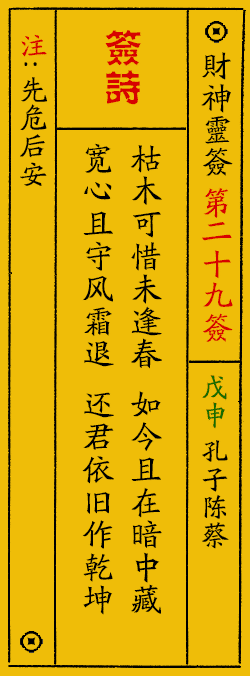 財神靈簽 第二十九簽
戊申 孔子陈蔡
簽詩
枯木可惜未逢春 如今且在暗中藏
宽心且守风霜退 还君依旧作乾坤
注:先危后安